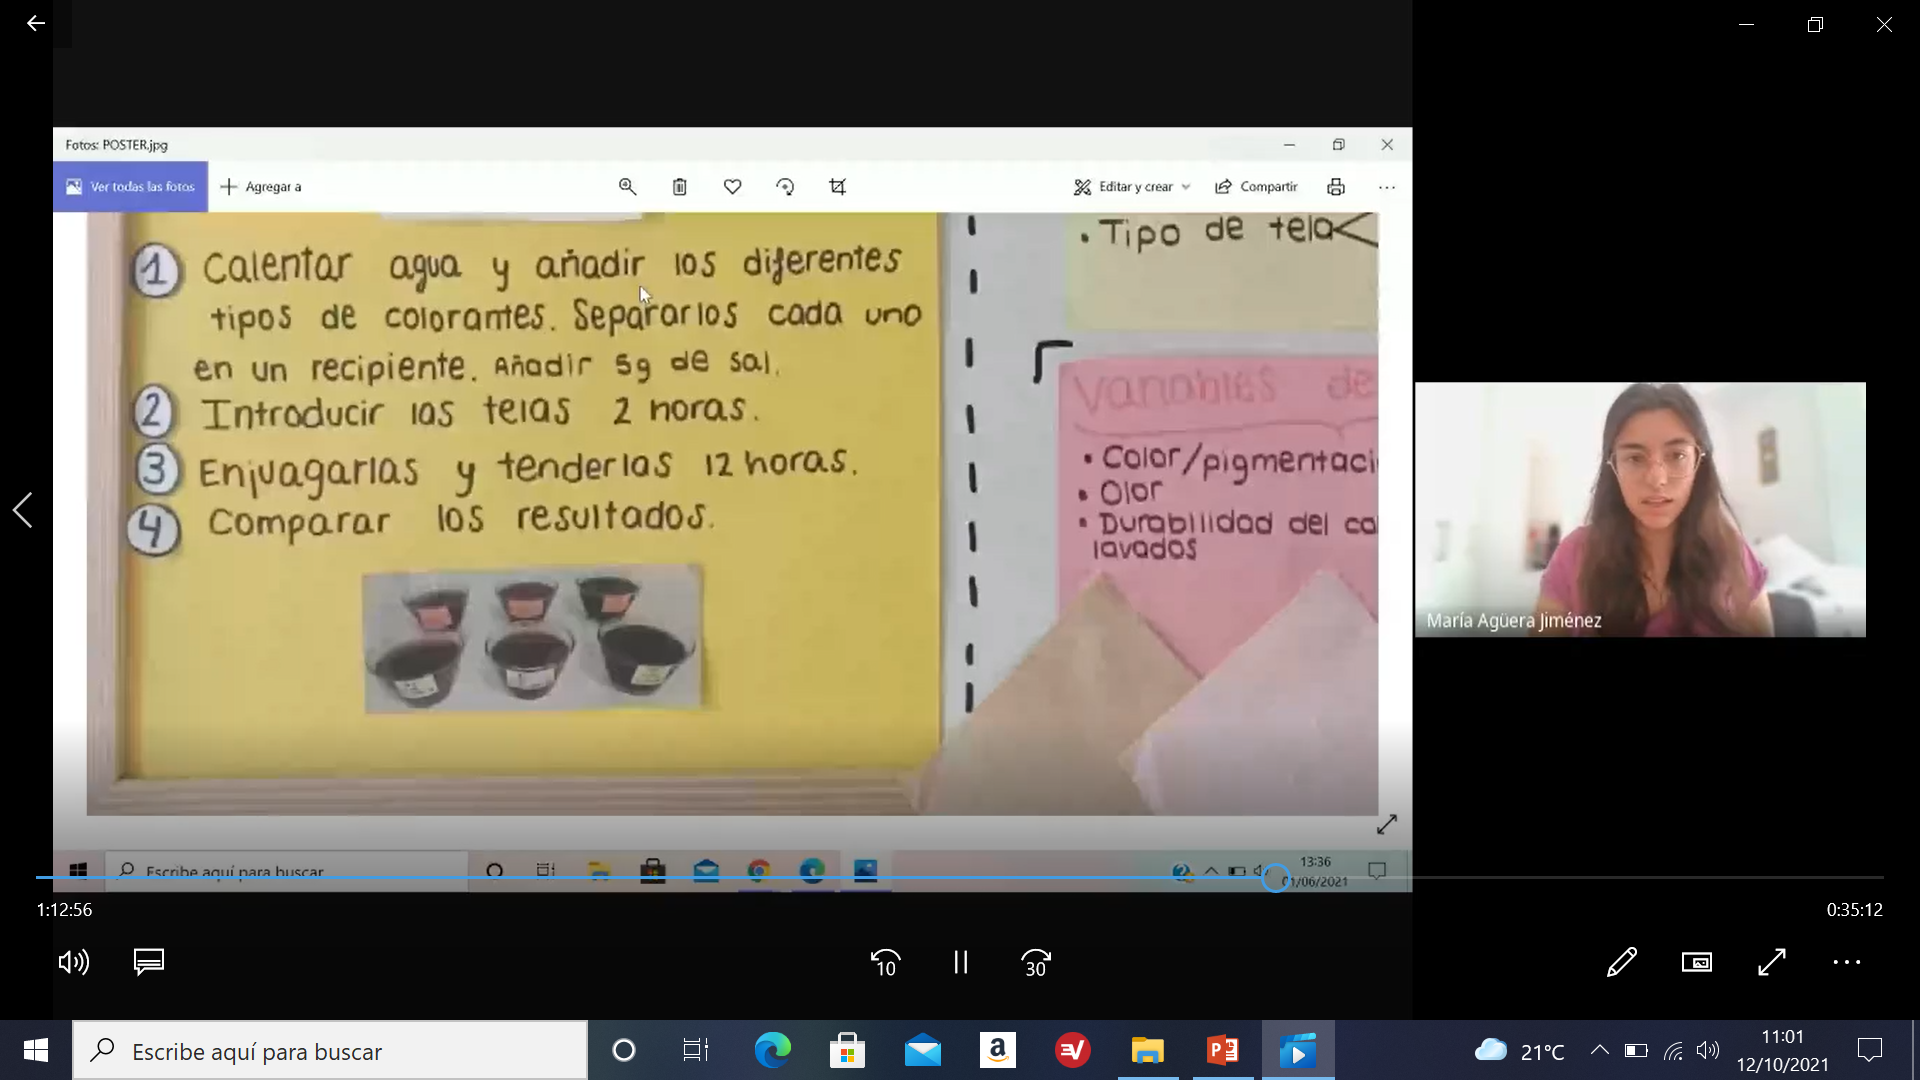 Fotos: POSTER.jpg
Ver todas las fotos
Agregar a
Editar y crear
Compartir
1 Calentar agua y añadir los diferentes
tipos de colorantes. Separarlos cada uno
en un recipiente. Añadir 5g de sal.
2 Introducir las telas 2 horas.
3 Enjuagarlas y tenderlas 12 horas.
4 Comparar los resultados.
• Tipo de tela
Variables de
• Color/pigmentaci
• Olor
• Durabilidad del co
lavados
María Agüera Jiménez
Escribe aquí para buscar
13:36
01/06/2021
1:12:56
0:35:12
10
30
Escribe aquí para buscar
21°C
11:01
12/10/2021